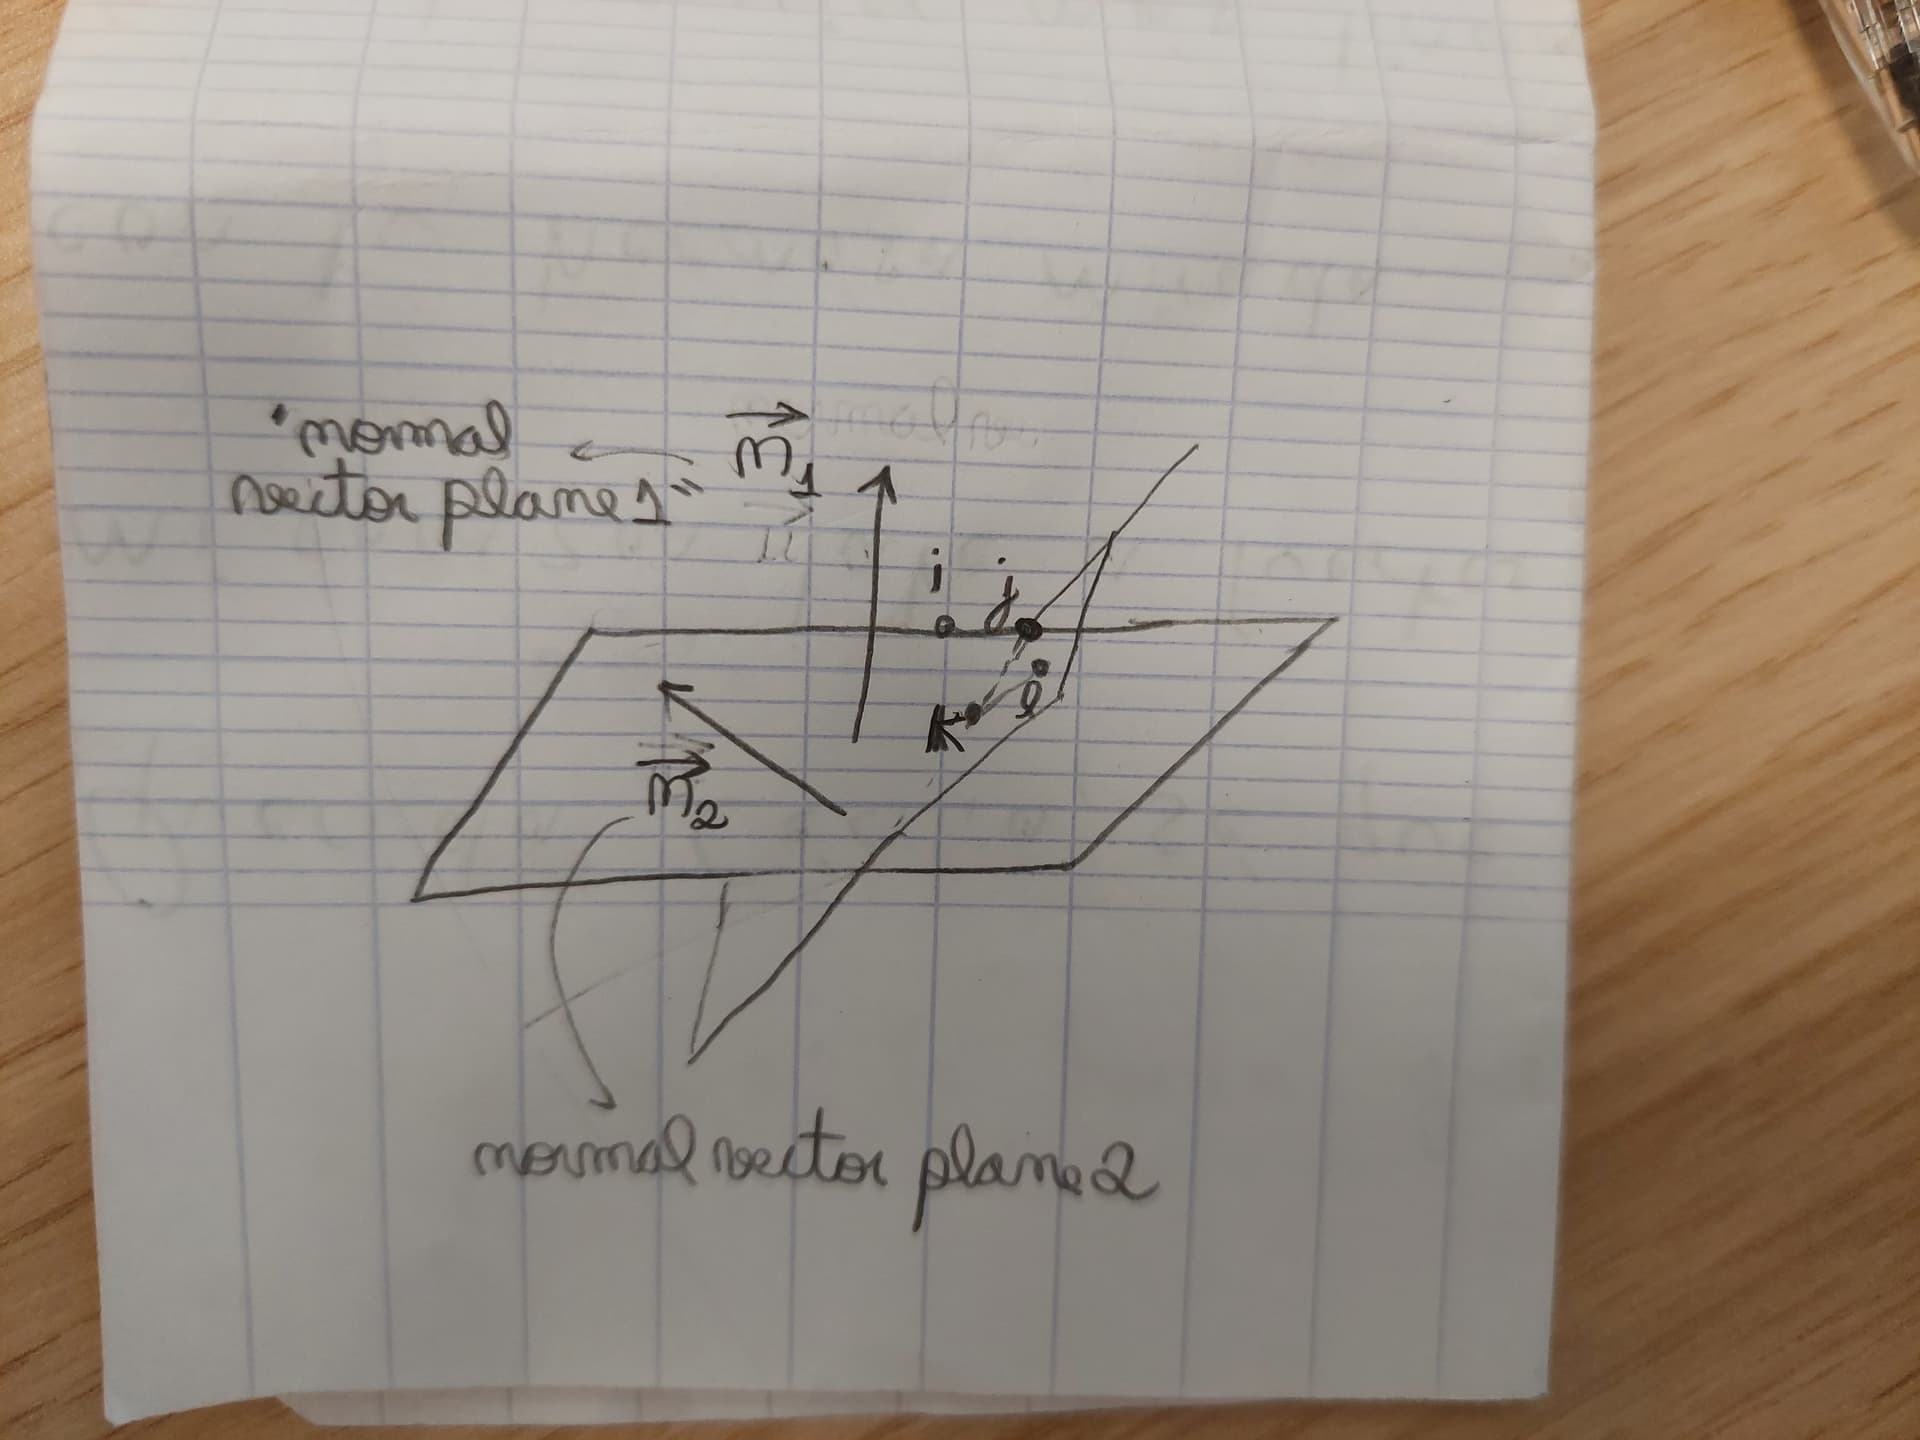 "normal
vector plane 1"
n₁
i
j
k
l
n₂
normal vector plane 2